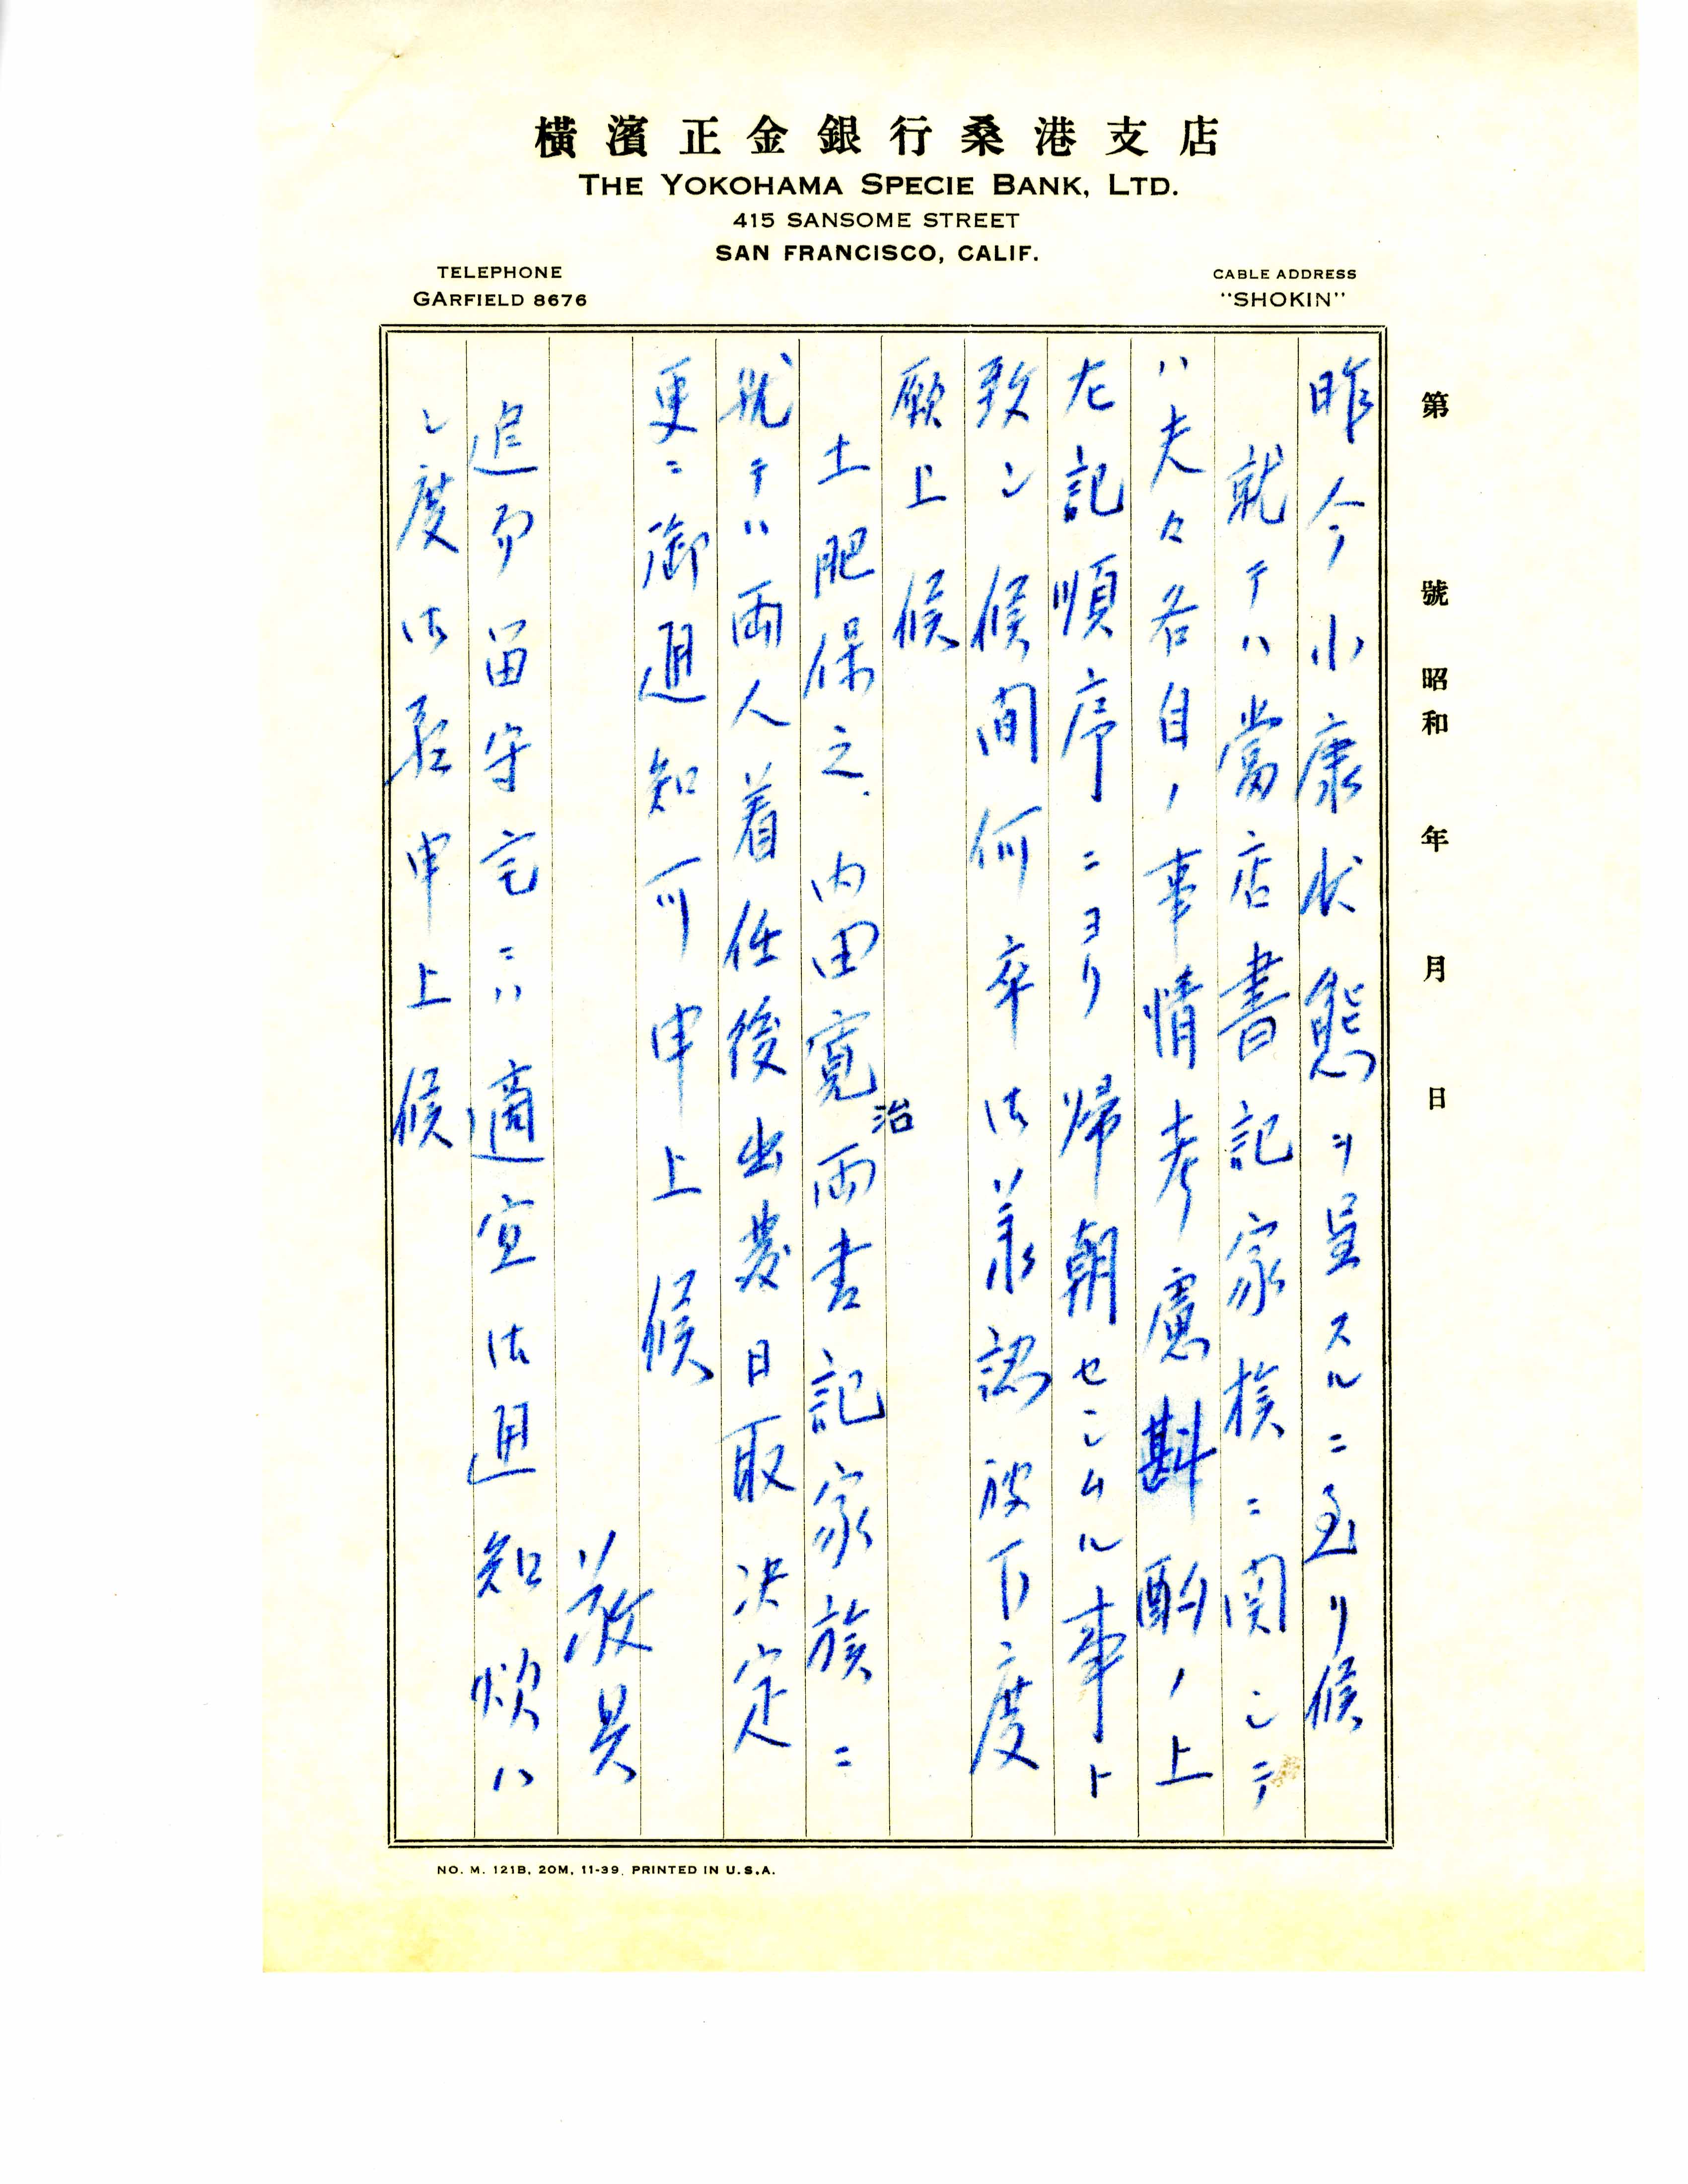 橫濱正金銀行桑港支店
THE YOKOHAMA SPECIE BANK, LTD.
415 SANSOME STREET
SAN FRANCISCO, CALIF.
TELEPHONE
GARFIELD 8676
CABLE ADDRESS
"SHOKIN"
第 號 昭和 年 月 日
昨今小康状態ヲ呈スルニ至リ候
就テハ當店書記家族ニ関シテ
ハ夫々各自ノ事情考慮斟酌ノ上
左記順序ニヨリ帰朝セシムル事ト
致シ候間何卒御承認被下度
願上候
土肥保之、内田寛治両書記家族ニ
就テハ両人着任後出発日取決定
更ニ御通知可申上候
敬具
追而留守宅ニハ適宜御通知煩ハ
シ度御願申上候
NO. M. 121B, 20M, 11-39. PRINTED IN U.S.A.